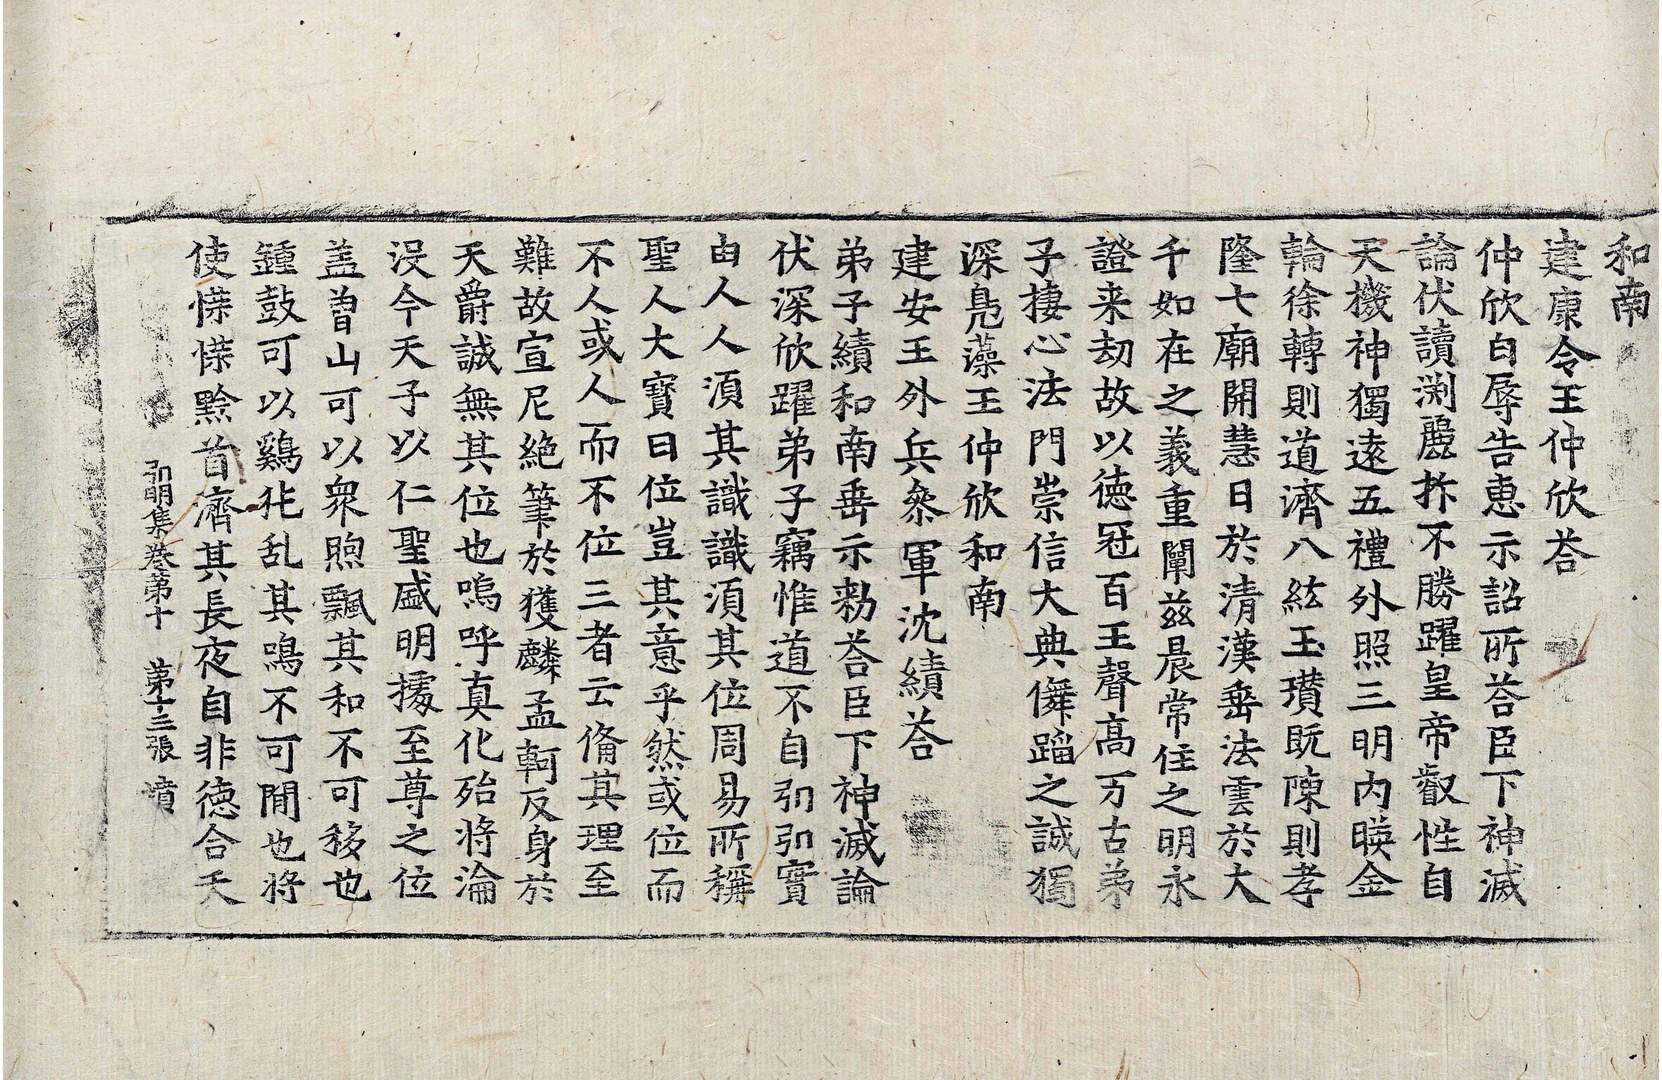 和南
建康令王仲欣荅
仲欣白辱告惠示詔所荅臣下神滅
論伏讀渕麗抃不勝躍皇帝叡性自
天機神獨遠五禮外照三明内暎金
輪徐轉則道濟八紘玉瓚既陳則孝
隆七廟開慧日於清漢垂法雲於大
千如在之義重闡兹晨常住之明永
證来劫故以徳冠百王聲高万古弟
子棲心法門崇信大典儛蹈之誠獨
深鳧藻王仲欣和南
建安王外兵叅軍沈績荅
弟子績和南垂示勑荅臣下神滅論
伏深欣躍弟子竊惟道不自弘弘實
由人人湏其識識湏其位周易所稱
聖人大寳曰位豈其意乎然或位而
不人或人而不位三者云俻其理至
難故宣尼絶筆於獲麟孟軻反身於
天爵誠無其位也嗚呼真化殆將淪
没今天子以仁聖盛明據至尊之位
盖曽山可以衆煦飄其和不可移也
鍾鼓可以鷄㹠乱其鳴不可間也將
使惵惵黔首濟其長夜自非徳合天
弘明集卷第十　第十三張　墳